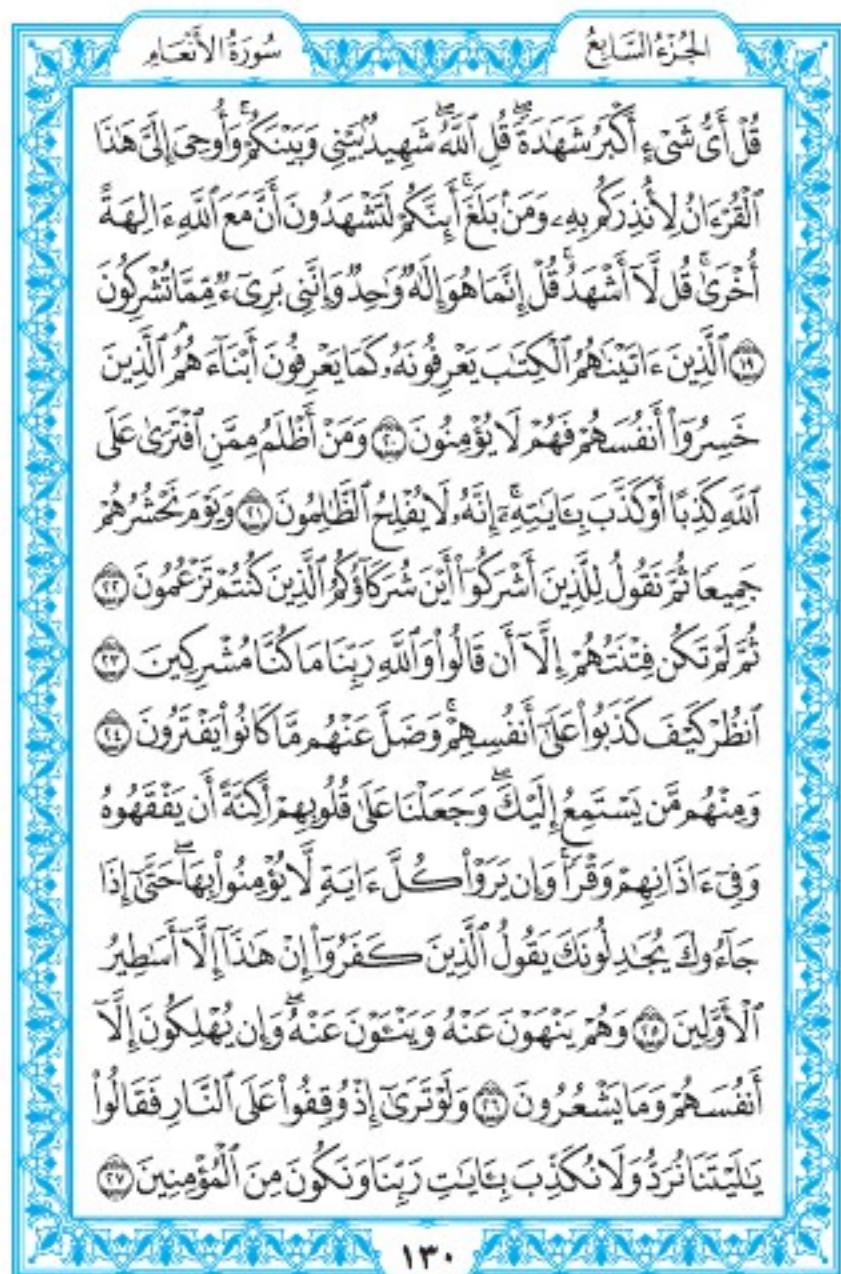 سُورَةُ الأَنْعَامِ
الجُزْءُ السَّابِعُ
قُلْ أَىُّ شَىْءٍ أَكْبَرُ شَهَٰدَةًۖ قُلِ ٱللَّهُۖ شَهِيدُۢ بَيْنِى وَبَيْنَكُمْۚ وَأُوحِىَ إِلَىَّ هَٰذَا
ٱلْقُرْءَانُ لِأُنذِرَكُم بِهِۦ وَمَنۢ بَلَغَۚ أَئِنَّكُمْ لَتَشْهَدُونَ أَنَّ مَعَ ٱللَّهِ ءَالِهَةً
أُخْرَىٰۚ قُل لَّآ أَشْهَدُۚ قُلْ إِنَّمَا هُوَ إِلَٰهٌ وَٰحِدٌ وَإِنَّنِى بَرِىٓءٌ مِّمَّا تُشْرِكُونَ
١٩ ٱلَّذِينَ ءَاتَيْنَٰهُمُ ٱلْكِتَٰبَ يَعْرِفُونَهُۥ كَمَا يَعْرِفُونَ أَبْنَآءَهُمُۘ ٱلَّذِينَ
خَسِرُوٓا۟ أَنفُسَهُمْ فَهُمْ لَا يُؤْمِنُونَ ٢٠ وَمَنْ أَظْلَمُ مِمَّنِ ٱفْتَرَىٰ عَلَى
ٱللَّهِ كَذِبًا أَوْ كَذَّبَ بِـَٔايَٰتِهِۦٓۗ إِنَّهُۥ لَا يُفْلِحُ ٱلظَّٰلِمُونَ ٢١ وَيَوْمَ نَحْشُرُهُمْ
جَمِيعًا ثُمَّ نَقُولُ لِلَّذِينَ أَشْرَكُوٓا۟ أَيْنَ شُرَكَآؤُكُمُ ٱلَّذِينَ كُنتُمْ تَزْعُمُونَ ٢٢
ثُمَّ لَمْ تَكُن فِتْنَتُهُمْ إِلَّآ أَن قَالُوا۟ وَٱللَّهِ رَبِّنَا مَا كُنَّا مُشْرِكِينَ ٢٣
ٱنظُرْ كَيْفَ كَذَبُوا۟ عَلَىٰٓ أَنفُسِهِمْۚ وَضَلَّ عَنْهُم مَّا كَانُوا۟ يَفْتَرُونَ ٢٤
وَمِنْهُم مَّن يَسْتَمِعُ إِلَيْكَۖ وَجَعَلْنَا عَلَىٰ قُلُوبِهِمْ أَكِنَّةً أَن يَفْقَهُوهُ
وَفِىٓ ءَاذَانِهِمْ وَقْرًاۚ وَإِن يَرَوْا۟ كُلَّ ءَايَةٍ لَّا يُؤْمِنُوا۟ بِهَاۖ حَتَّىٰٓ إِذَا
جَآءُوكَ يُجَٰدِلُونَكَ يَقُولُ ٱلَّذِينَ كَفَرُوٓا۟ إِنْ هَٰذَآ إِلَّآ أَسَٰطِيرُ
ٱلْأَوَّلِينَ ٢٥ وَهُمْ يَنْهَوْنَ عَنْهُ وَيَنْـَٔوْنَ عَنْهُۖ وَإِن يُهْلِكُونَ إِلَّآ
أَنفُسَهُمْ وَمَا يَشْعُرُونَ ٢٦ وَلَوْ تَرَىٰٓ إِذْ وُقِفُوا۟ عَلَى ٱلنَّارِ فَقَالُوا۟
يَٰلَيْتَنَا نُرَدُّ وَلَا نُكَذِّبَ بِـَٔايَٰتِ رَبِّنَا وَنَكُونَ مِنَ ٱلْمُؤْمِنِينَ ٢٧
١٣٠